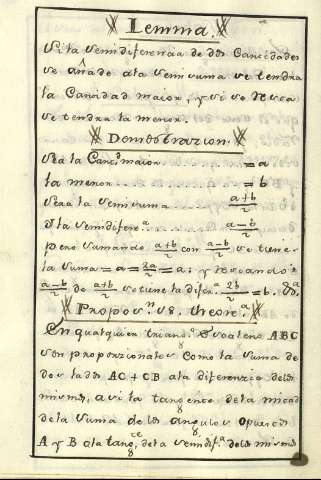 Lemma.
Si la semidiferencia de dos Cantidades
se añade ala semisuma se tendra
la Cantidad maior, y si se resta
se tendra la menor.
Demostrazion.
Sea la Cant.d maior = a
la menor = b
Sera la semisuma a+b/2
y la semidifere.a a-b/2
pero sumando a+b/2 con a-b/2 se tiene
la suma = a = 2a/2 = a: y restando
a-b/2 de a+b/2 se tiene la difer.a 2b/2 = b. &a.
Propos.n se. theore.a
En qualquier triang.o Escaleno ABC
son proporzionales Como la suma de
dos lados AC + CB ala diferenzia delos
mismos, asi la tangente dela mitad
dela suma delos angulos opuestos
A y B ala tang.te dela semidif.a delos mismos